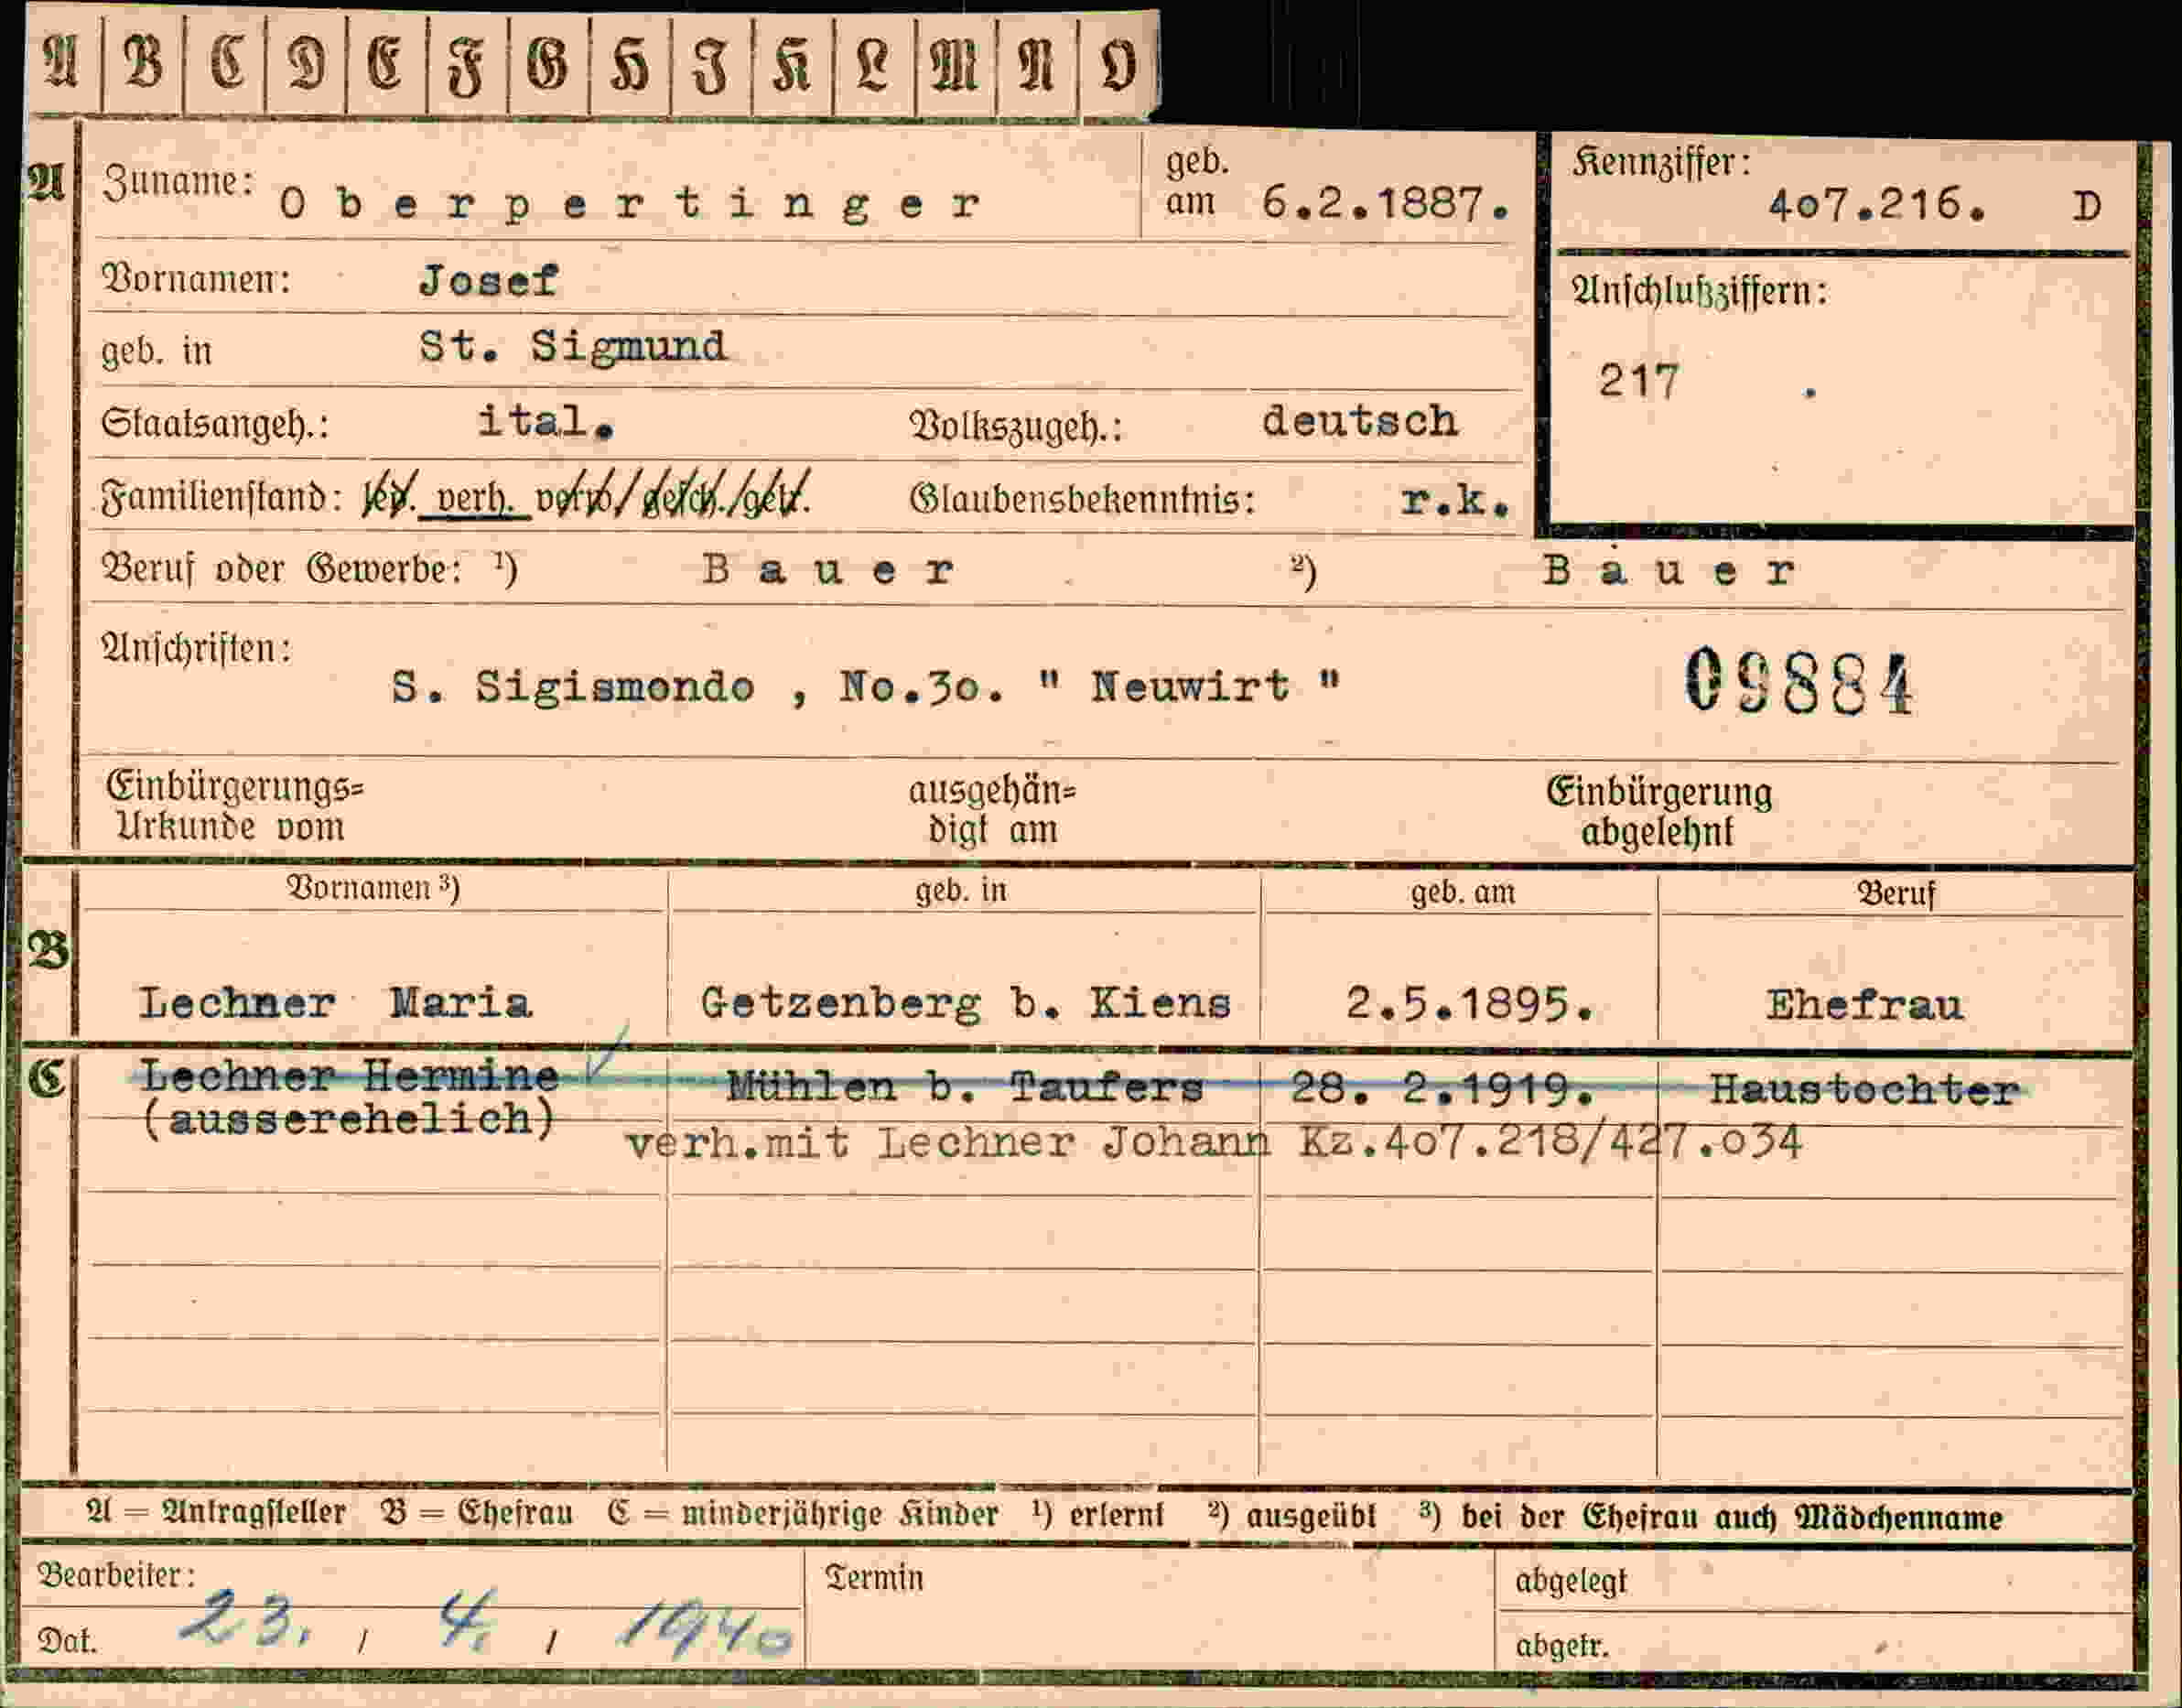 A B C D E F G H I K L M N O
A Zuname: Oberpertinger geb. am 6.2.1887. Kennziffer: 407.216. D
Vornamen: Josef
Anschlußziffern:
geb. in St. Sigmund
217
Staatsangeh.: ital. Volkszugeh.: deutsch
Familienstand: led. verh. verw./gesch./getr. Glaubensbekenntnis: r.k.
Beruf oder Gewerbe: ¹) Bauer ²) Bauer
Anschriften:
S. Sigismondo , No.30. " Neuwirt " 09884
Einbürgerungs= ausgehän= Einbürgerung
Urkunde vom digt am abgelehnt
Vornamen ³) geb. in geb. am Beruf
B
Lechner Maria Getzenberg b. Kiens 2.5.1895. Ehefrau
C Lechner Hermine Mühlen b. Taufers 28. 2.1919. Haustochter
(ausserehelich)
verh.mit Lechner Johann Kz.407.218/427.034
A = Antragsteller B = Ehefrau C = minderjährige Kinder ¹) erlernt ²) ausgeübt ³) bei der Ehefrau auch Mädchenname
Bearbeiter: Termin abgelegt
Dat. 23. / 4. / 1940 abgetr.